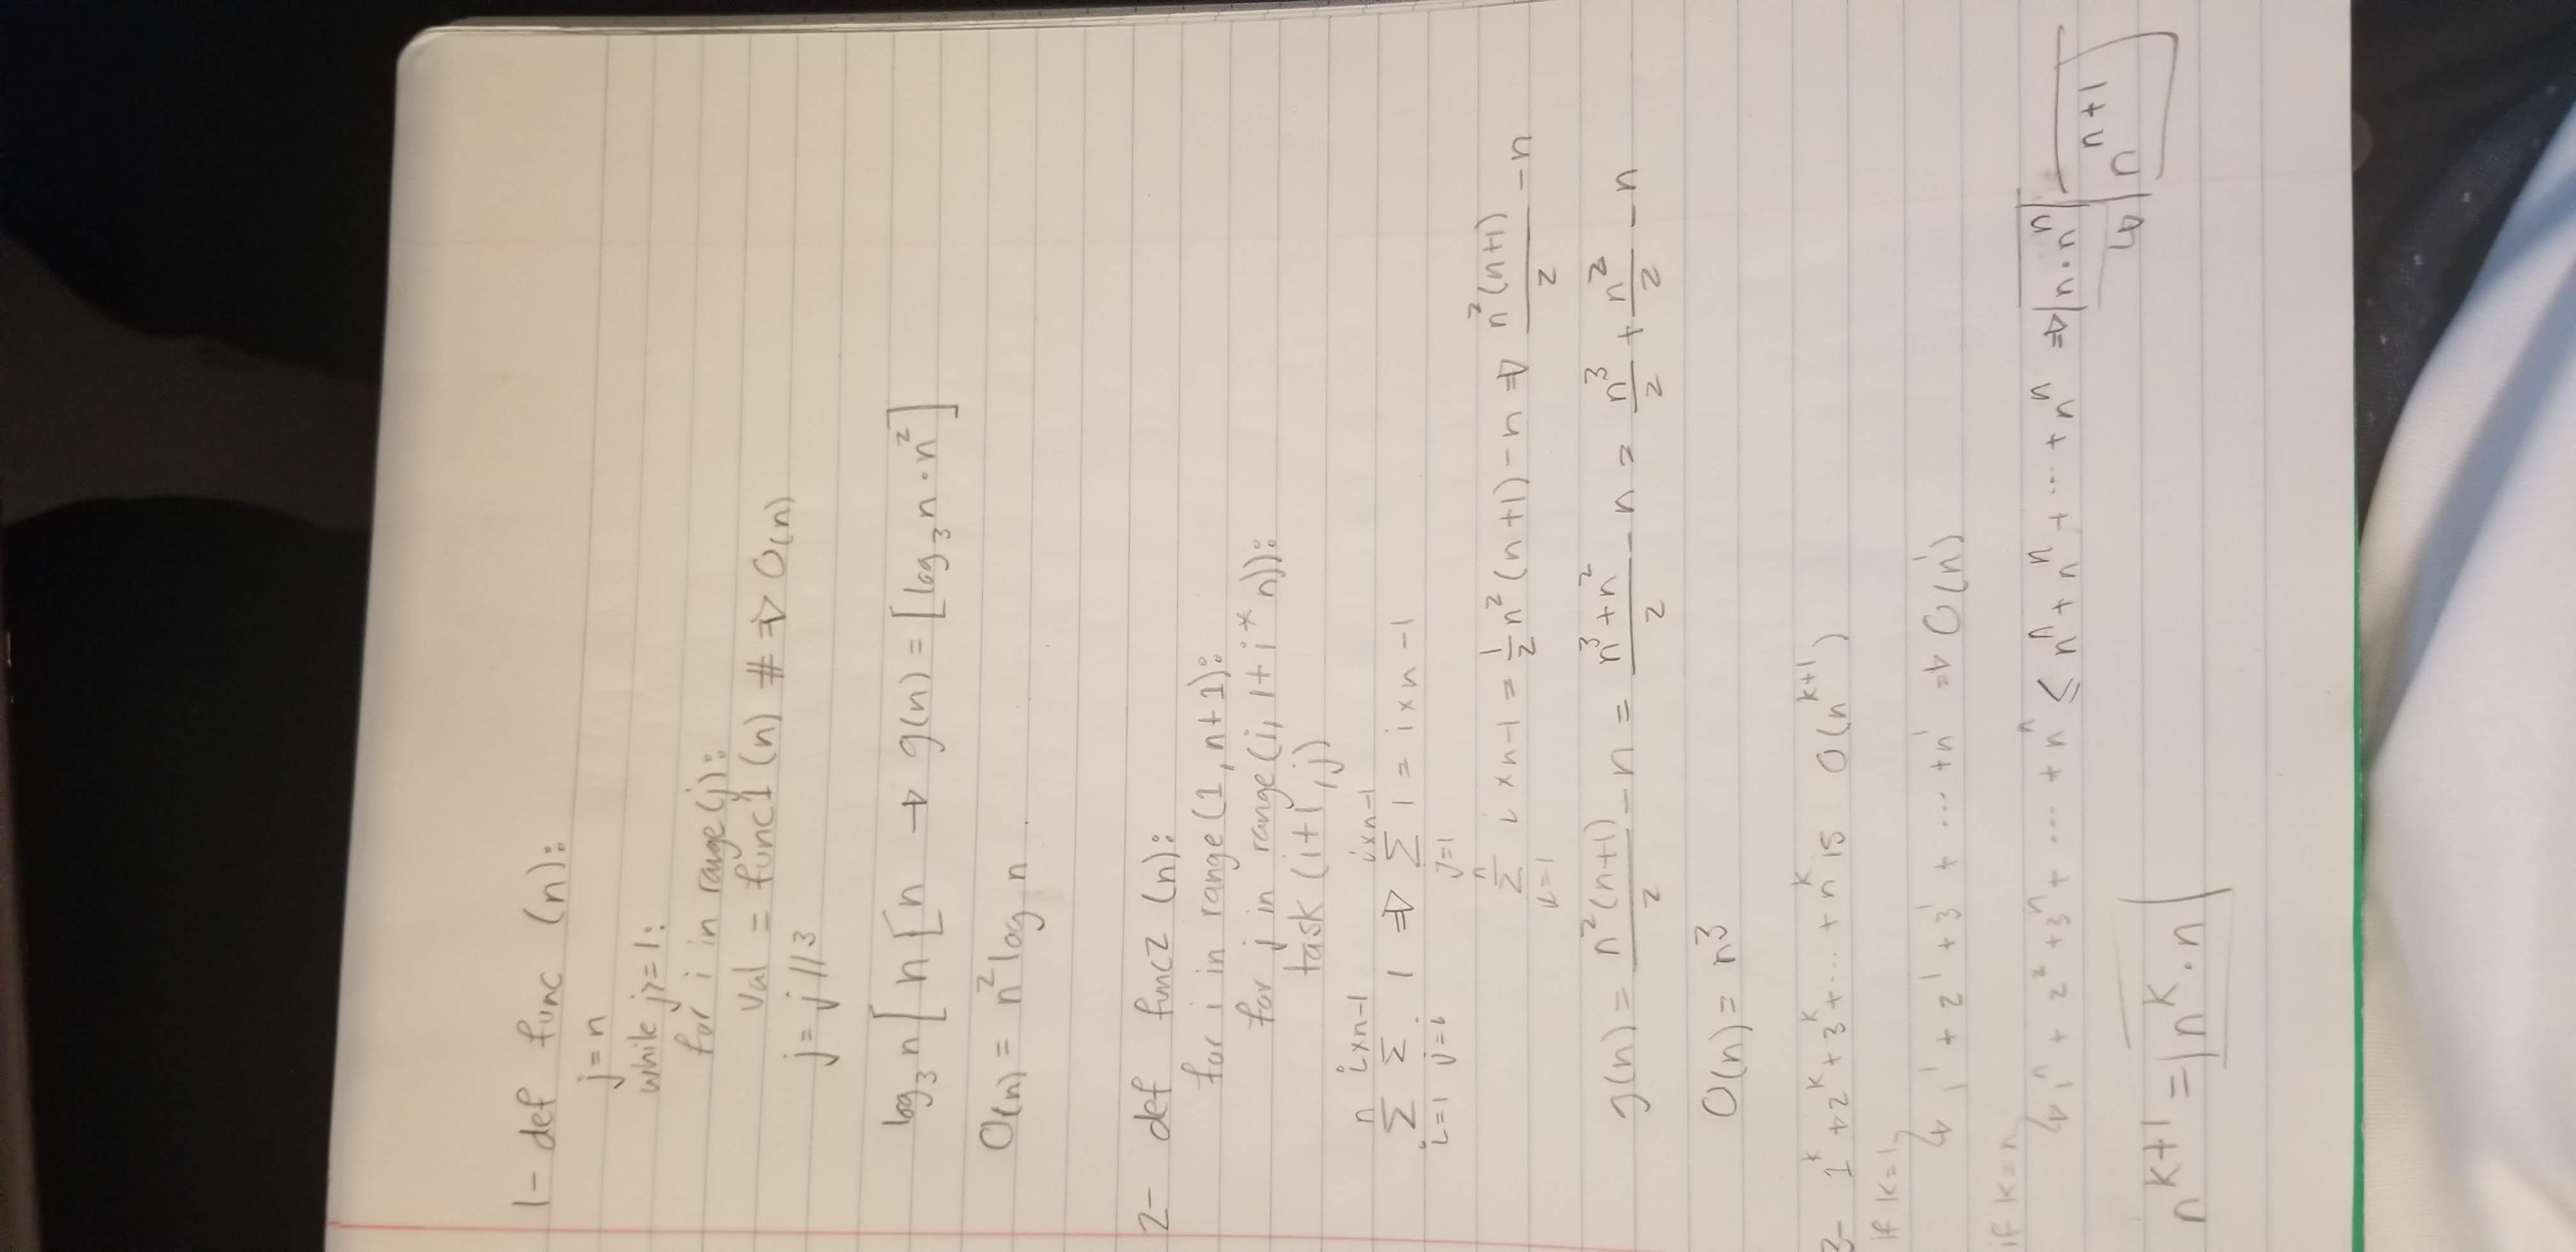 1- def func (n):
j=n
while j>=1:
for i in range(j):
val = func1 (n) # ⇒ O(n)
j= j//3
log₃ n [ n [ n → g(n) = [log₃ n · n²]
O(n) = n² log n .
2- def func2 (n):
for i in range (1, n+1):
for j in range (i, 1+i * n)):
task (i+1, j)
n i×n-1 i×n-1
Σ Σ 1 ⇒ Σ 1 = i×n-1
i=1 j=i j=1
n
Σ i×n-1 = ½n²(n+1)-n ⇒ n²(n+1)/2 - n
i=1
g(n) = n²(n+1)/2 - n = (n³+n²)/2 - n = n³/2 + n²/2 - n
O(n) = n³
3- 1^k + 2^k + 3^k + ... + n^k is O(n^(k+1))
if k=1
↳ 1¹ + 2¹ + 3¹ + ... + n¹ ⇒ O(n¹)
if k=n
↳ 1ⁿ + 2² + 3ⁿ + ... + nⁿ ≤ nⁿ + nⁿ + ... + nⁿ ⇒ n·nⁿ
↳ n^(n+1)
n^(k+1) = n^k · n